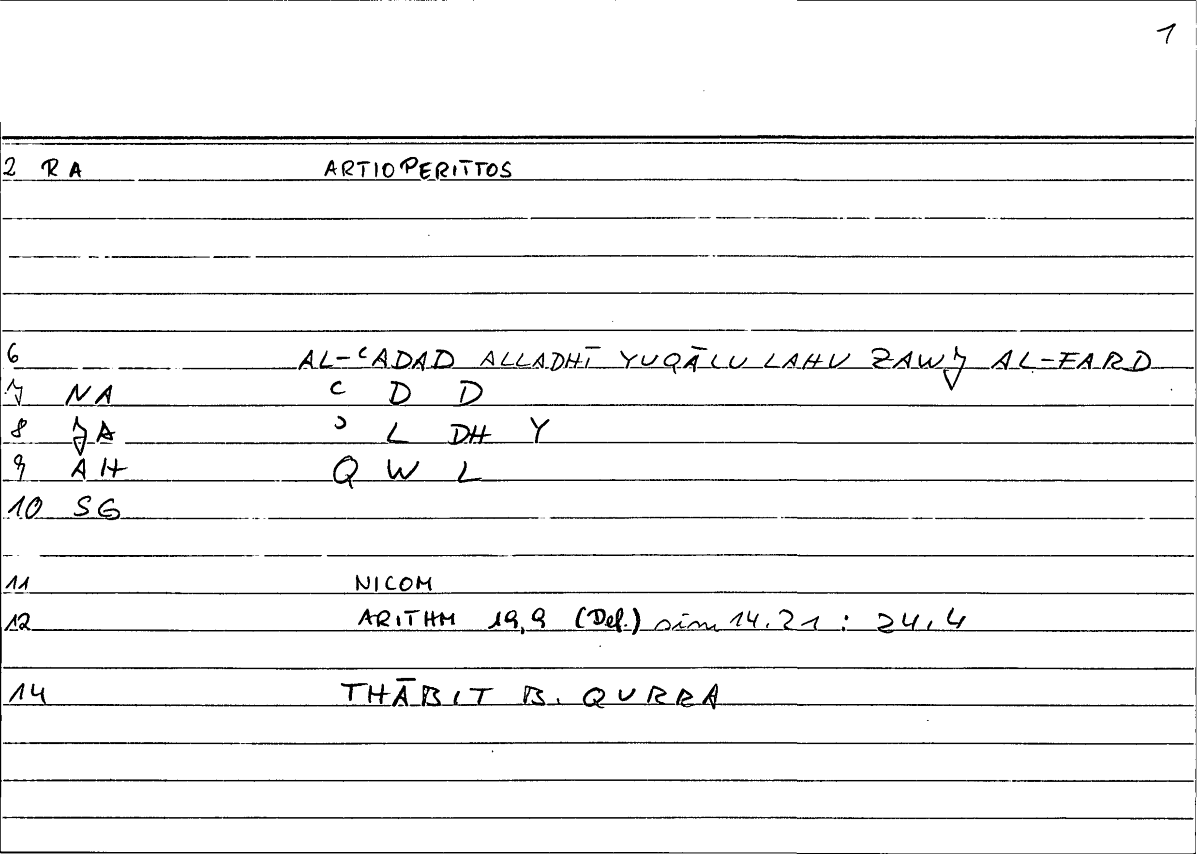 1
2 RA ARTIOPERITTOS
6 AL-ʿADAD ALLADHĪ YUQĀLU LAHU ZAWJ AL-FARD
7 NA ʿ D D
8 JA ʾ L DH Y
9 AH Q W L
10 SG
11 NICOM
12 ARITHM 19,9 (Def.) sim 14.21 : 24,4
14 THĀBIT B. QURRA